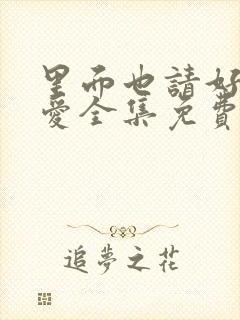 里而也請好
愛全集免費
追夢之花